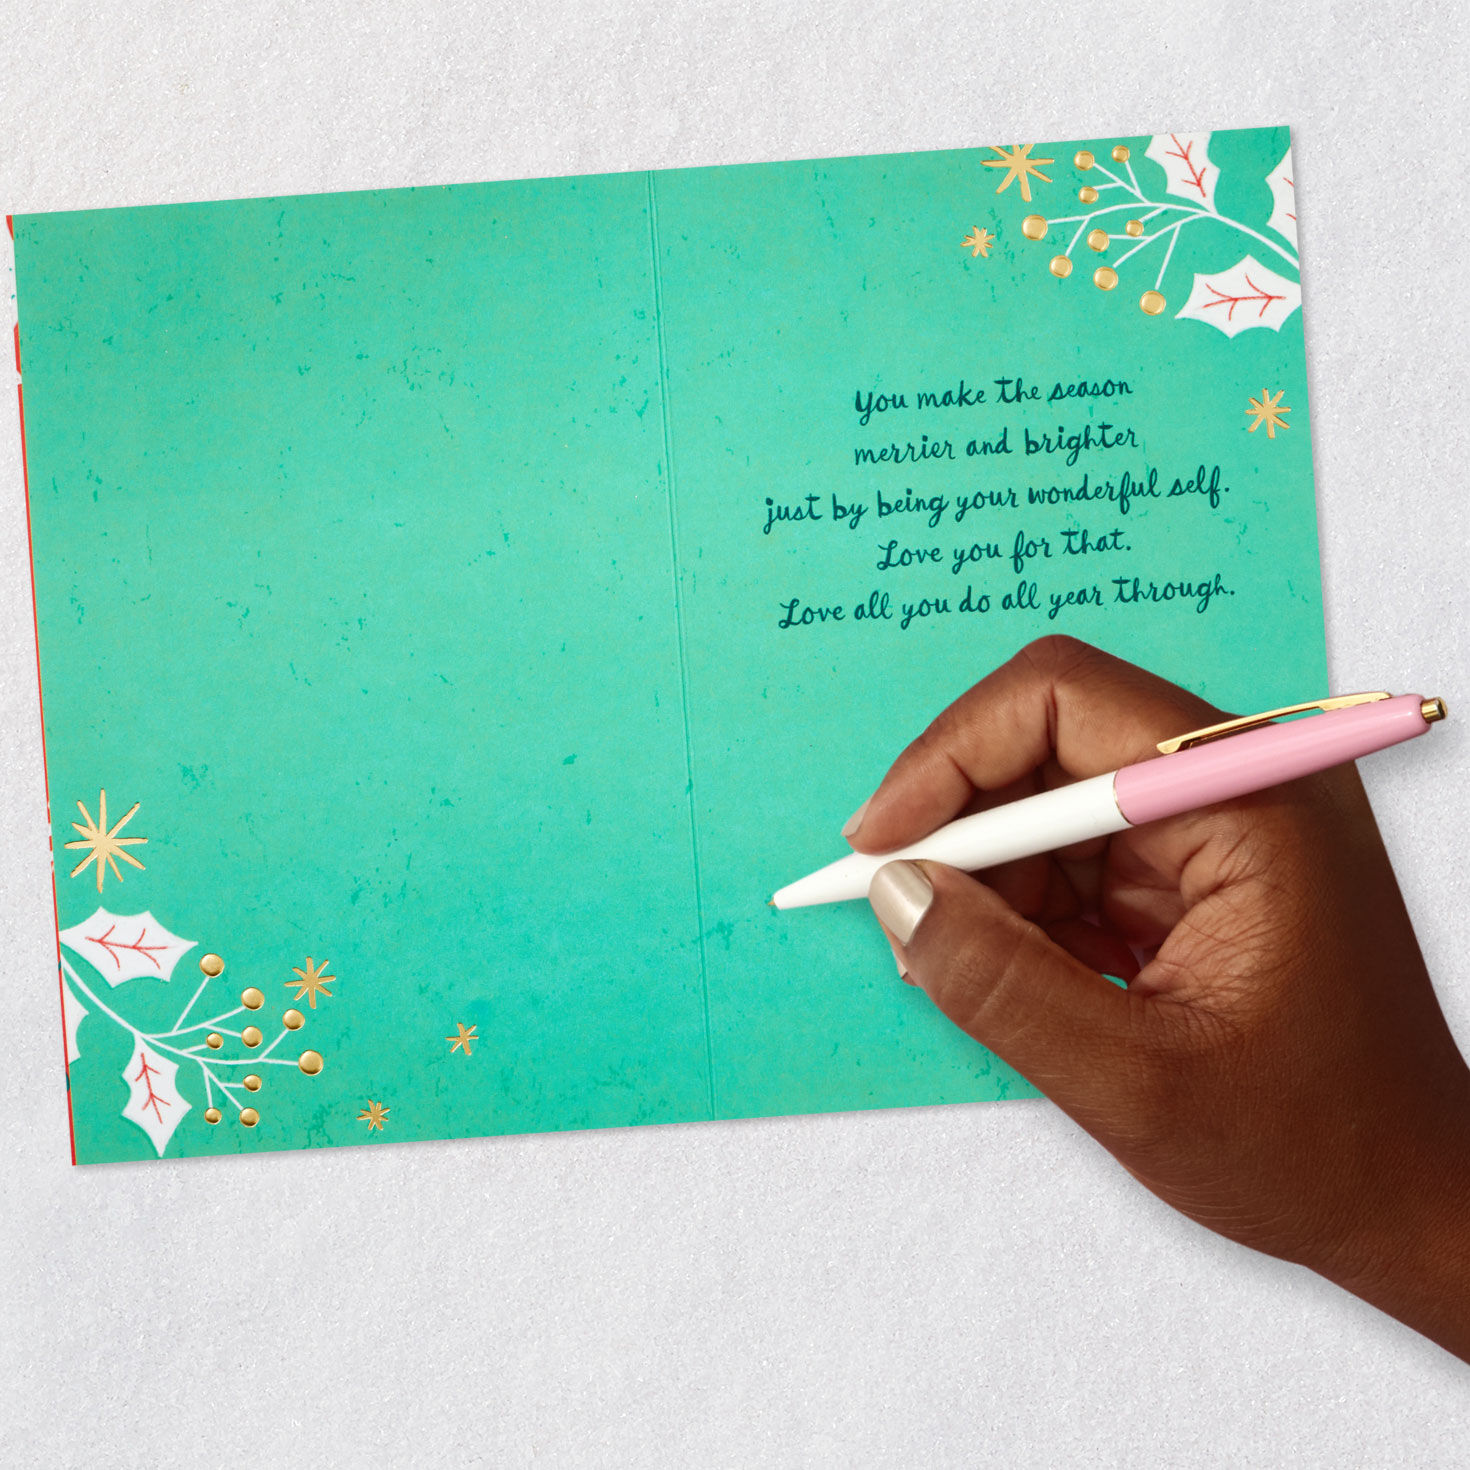 You make the season
merrier and brighter
just by being your wonderful self.
Love you for that.
Love all you do all year through.